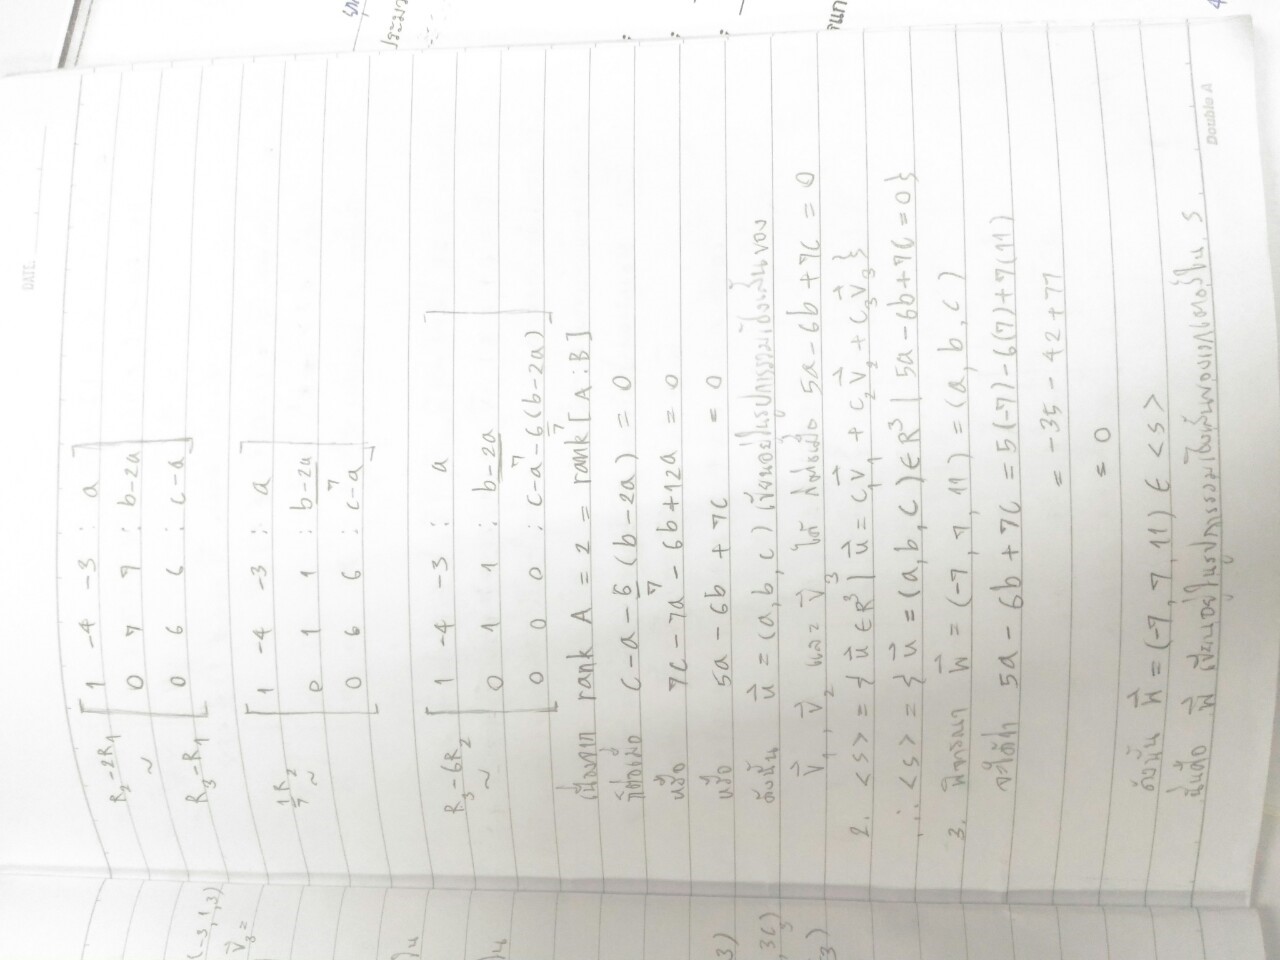 DATE.
R₂-2R₁ [ 1 -4 -3 : a
~ 0 7 7 : b-2a
R₃-R₁ 0 6 6 : c-a ]
[ 1 -4 -3 : a
1/7 R₂ ~ 0 1 1 : (b-2a)/7
0 6 6 : c-a ]
R₃-6R₂ ~ [ 1 -4 -3 : a
0 1 1 : (b-2a)/7
0 0 0 : c-a-6/7(b-2a) ]
เนื่องจาก rank A = 2 = rank [A:B]
ก็ต่อเมื่อ c-a-6/7(b-2a) = 0
หรือ 7c-7a-6b+12a = 0
หรือ 5a-6b+7c = 0
ดังนั้น u⃗ = (a,b,c) เขียนอยู่ในรูปการรวมเชิงเส้นของ
v⃗₁, v⃗₂ และ v⃗₃ ได้ ก็ต่อเมื่อ 5a-6b+7c = 0
2. <s> = { u⃗ ∈ R³ | u⃗ = c₁v⃗₁ + c₂v⃗₂ + c₃v⃗₃ }
∴ <s> = { u⃗ = (a,b,c) ∈ R³ | 5a-6b+7c = 0 }
3. พิจารณา w⃗ = (-7, 7, 11) = (a,b,c)
จะได้ว่า 5a-6b+7c = 5(-7)-6(7)+7(11)
= -35-42+77
= 0
ดังนั้น w⃗ = (-7, 7, 11) ∈ <s>
นั่นคือ w⃗ เขียนอยู่ในรูปการรวมเชิงเส้นของเวกเตอร์ใน s
Double A
(-3,1,3)
v⃗₃ =